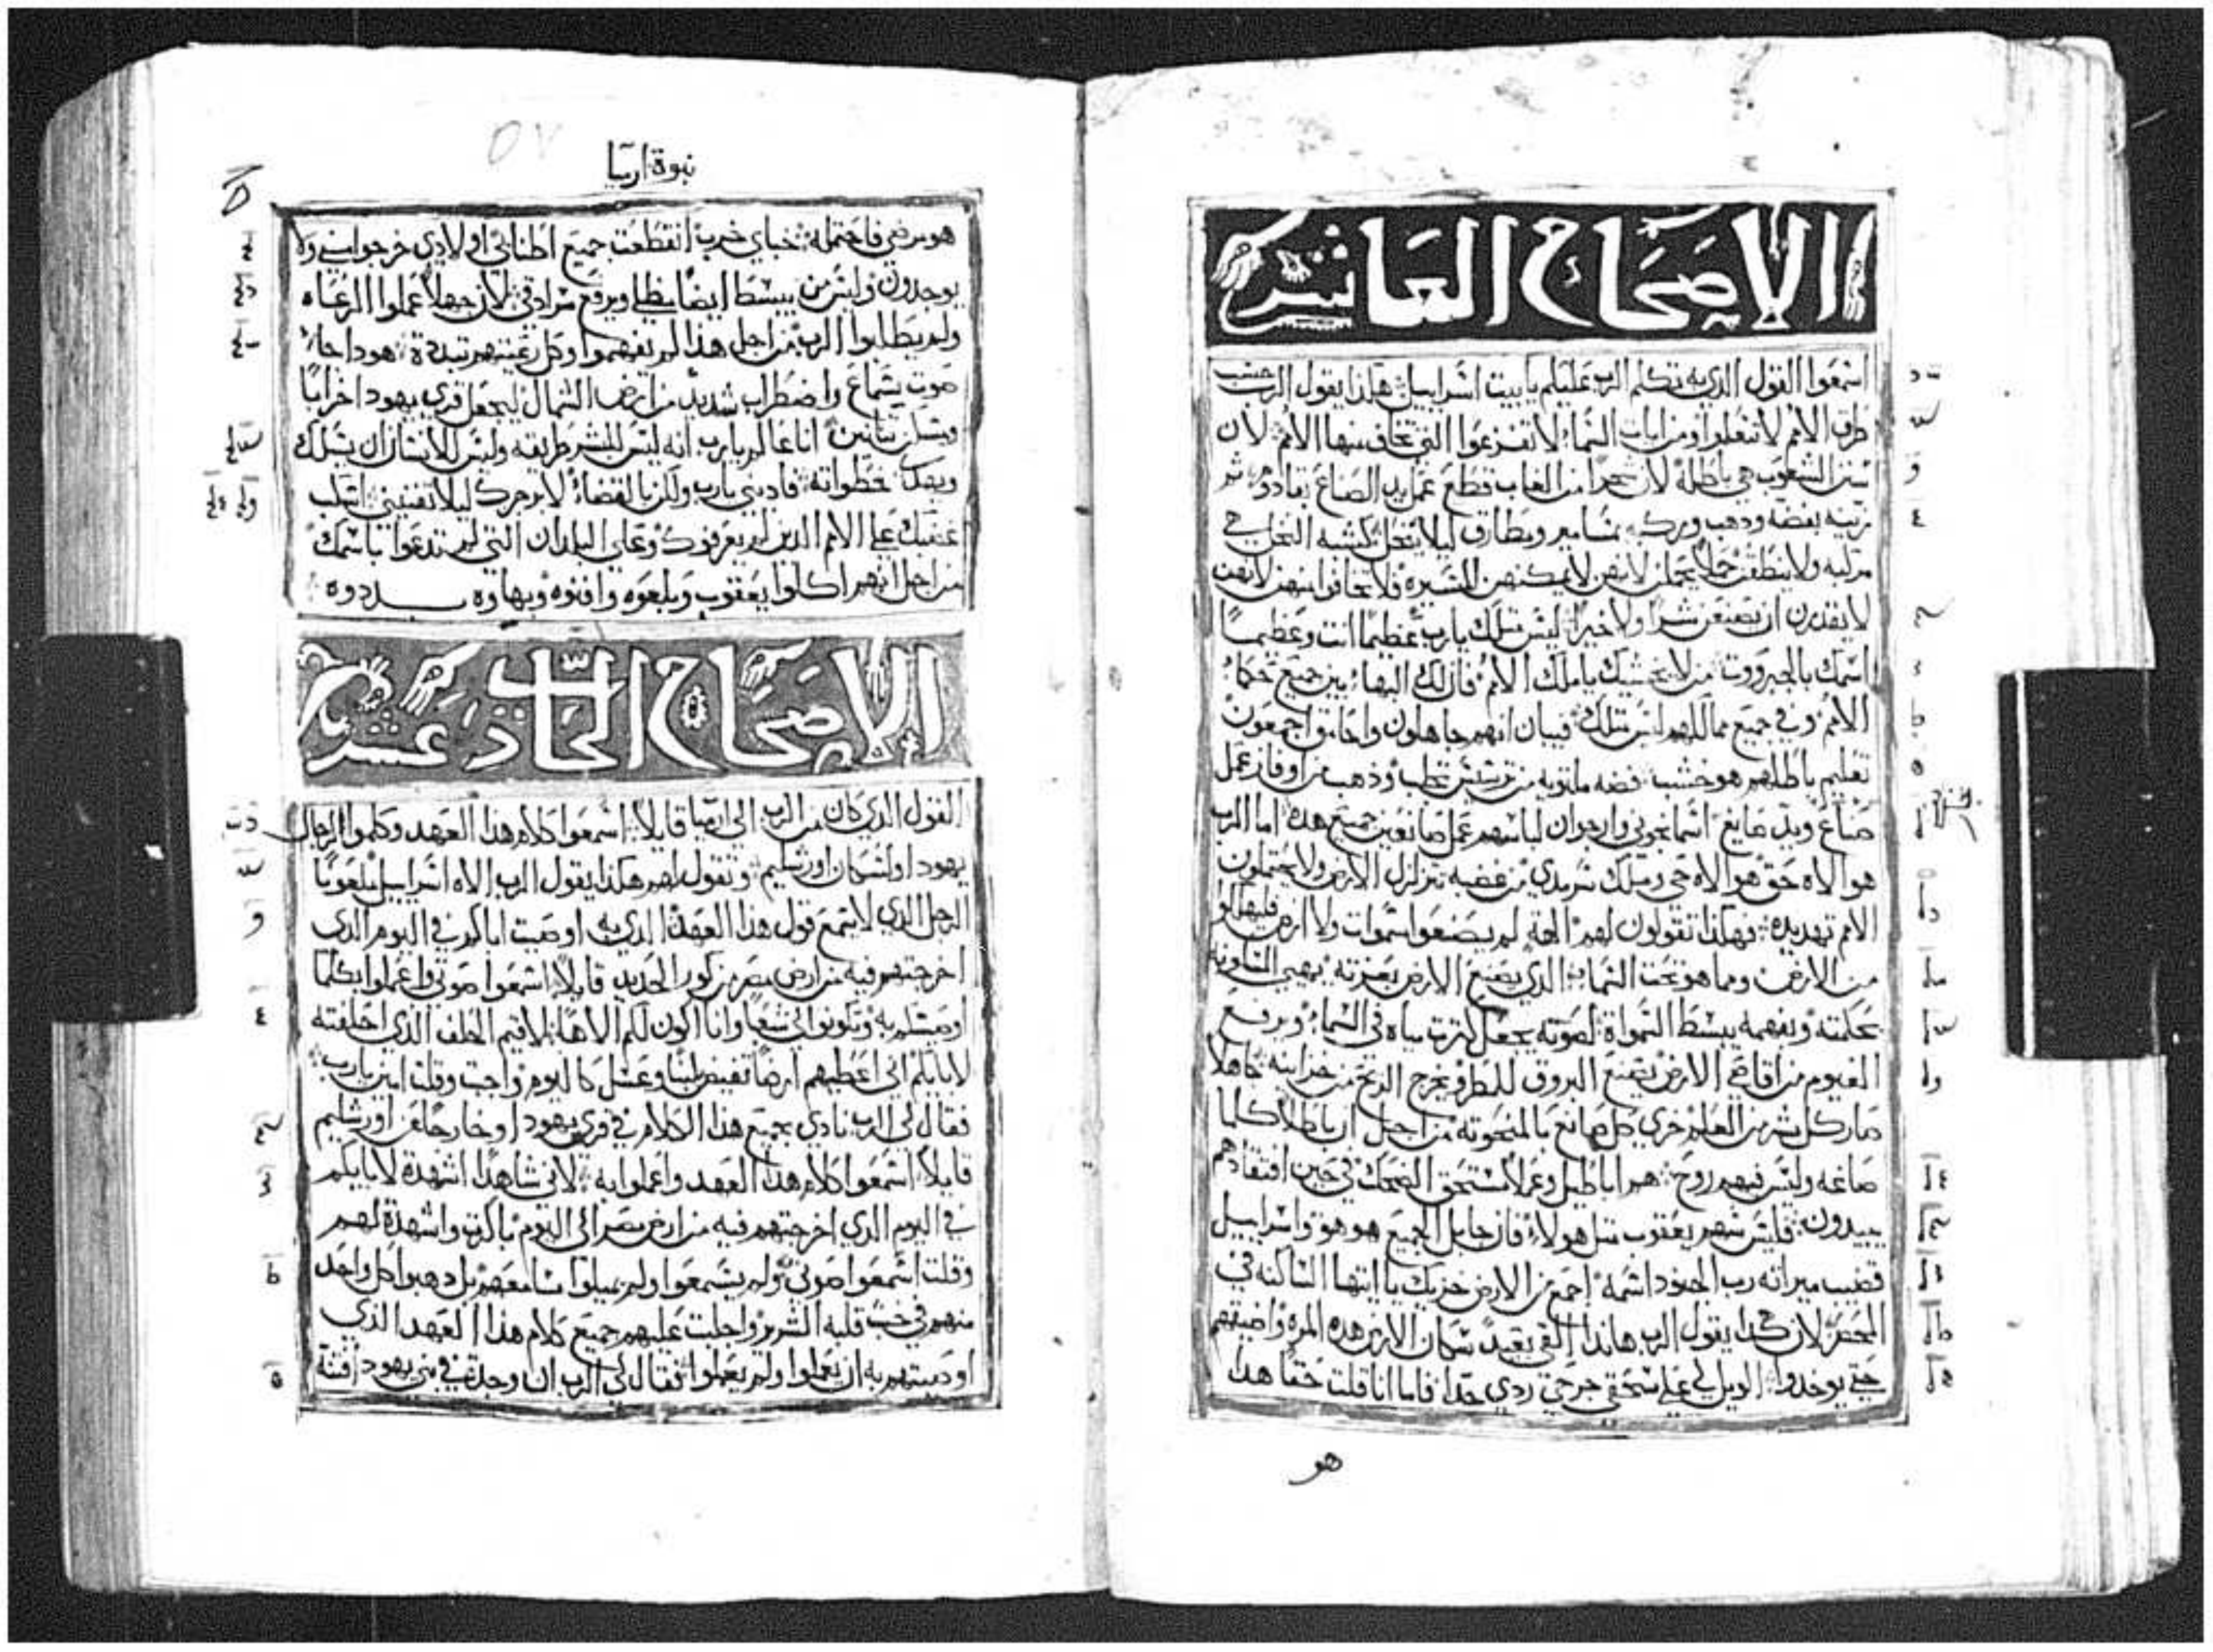 الاصحاح العاشر
اسمعوا القول الذي به تكلم الرب عليكم يا بيت اسراييل هكذا يقول الرب حسب
طرق الامم لا تتعلموا ومن ايات السماء لا تفزعوا التي تخاف منها الامم لان
سنن الشعوب هي باطلة لان شجرا من الغاب قطع عمل يد الصناع بقادوم
زينه بفضه وذهب وركبه بمسامير ومطارق ليلا ينحل كشبه النخل هي
مركبه ولا ينطقن حملا يحملن لانهن لا يمكنهن المسيره فلا تخافوا منهن لانهن
لا يقدرن ان يصنعن شرا ولا خيرا ليس مثلك يا رب عظيما انت وعظيما
اسمك بالجبروت من لا يخشيك يا ملك الامم فان لك البهاء بين جميع حكماء
الامم وفي جميع ممالكهم ليس مثلك فيبان انهم جاهلون واحامق اجمعون
تعليم باطلهم هو خشب فضه ملتويه من ترسيس تجلب وذهب من اوفاز عمل
صناع ويد صايغ اسمانجوني وارجوان لباسهم عمل صانعين جميع هذه اما الرب
هو الاه حق هو الاه حي وملك سرمدي من غضبه تتزلزل الارض ولا يحتملون
الامم تهديده فهكذا تقولون لهم الهة لم يصنعوا السموات ولا الارض فليهلكوا
من الارض ومما هو تحت السماء الذي يصنع الارض بعزته يهيي المسكونه
بحكمته وبفهمه يبسط السمواة لصوته يجعل كثرت مياه في السماء ويرفع
الغيوم من اقاصي الارض يصنع البروق للمطر ويخرج الريح من خزاينه جاهلا
صار كل بشر من العلم خزي كل صانع بالمنحوته من اجل ان باطلا كلما
صاغه وليس فيهم روح هم اباطيل وعملا يستحق الضحك في حين افتقادهم
يبيدون فليس سهم يعقوب مثل هولاء فان جابل الجميع هو هو واسراييل
قضيب ميراته رب الجنود اسمه اجمع من الارض خزيك يا ايتها الساكنه في
المحصر لان هكذا يقول الرب هانذا القي بعيدا سكان الارض هذه المره واضيقهم
حتي يوخدوا الويل لي علي سحقي جرحتي ردي جدا فاما انا قلت حقا هدا
هو
نبوة ارميا
هو مرضي فاحتمله خباي خرب انقطعت جميع اطنابي اولادي خرجوا مني ولا
يوجدون وليس من يبسط ايضا مظلي ويرفع سرادقي لان جهلا عملوا الرعاه
ولم يطلبوا الرب من اجل هذا لم يفهموا وكل رعيتهم تبددة هودا جاء
صوت يشماع واضطراب شديد من ارض الشمال ليجعل قري يهودا خرابا
ومسكن تنانين انا عالم يا رب انه ليس للبشر طريقه وليس للانسان ان يسلك
ويصلح خطواته فادبني يا رب ولكن بالقضاء لا برجزك ليلا تفنيني اسكب
غضبك علي الامم الذين لم يعرفوك وعلي البلدان التي لم تدعوا باسمك
من اجل انهم اكلوا يعقوب وبلعوه وافنوه وبهاوه بددوه
الاصحاح الحادي عشر
القول الذي كان من الرب الي ارميا قايلا اسمعوا كلام هذا العهد وكلموا الرجال
يهودا ولسكان اورشليم وتقول لهم هكذا يقول الرب الاه اسراييل ملعونا
الرجل الذي لا يسمع قول هذا العهد الذي به اوصيت اباكم في اليوم الذي
اخرجتهم فيه من ارض مصر من كور الحديد قايلا اسمعوا صوتي واعملوا بكلما
اوصيتكم به وتكونوا لي شعبا وانا اكون لكم الاها لاقيم الحلف الذي احلفته
لابايكم اني اعطيهم ارضا تفيض لبنا وعسل كاليوم واجبت وقلت امين يا رب
فقال لي الرب نادي بجميع هذا الكلام في قري يهودا وخارجا عن اورشليم
قايلا اسمعوا كلام هذا العهد واعملوا به لاني شاهدا اشهدة لابايكم
في اليوم الذي اخرجتهم فيه من ارض مصر الي اليوم باكرت واشهدة لهم
وقلت اسمعوا صوتي ولم يسمعوا ولم يميلوا مسامعهم بل دهبوا كل واحد
منهم في خبث قلبه الشرير واجلبت عليهم جميع كلام هذا العهد الذي
اوصيتهم به ان يعملوا ولم يعملوا فقال لي الرب ان وجدة في بني يهودا فتنة